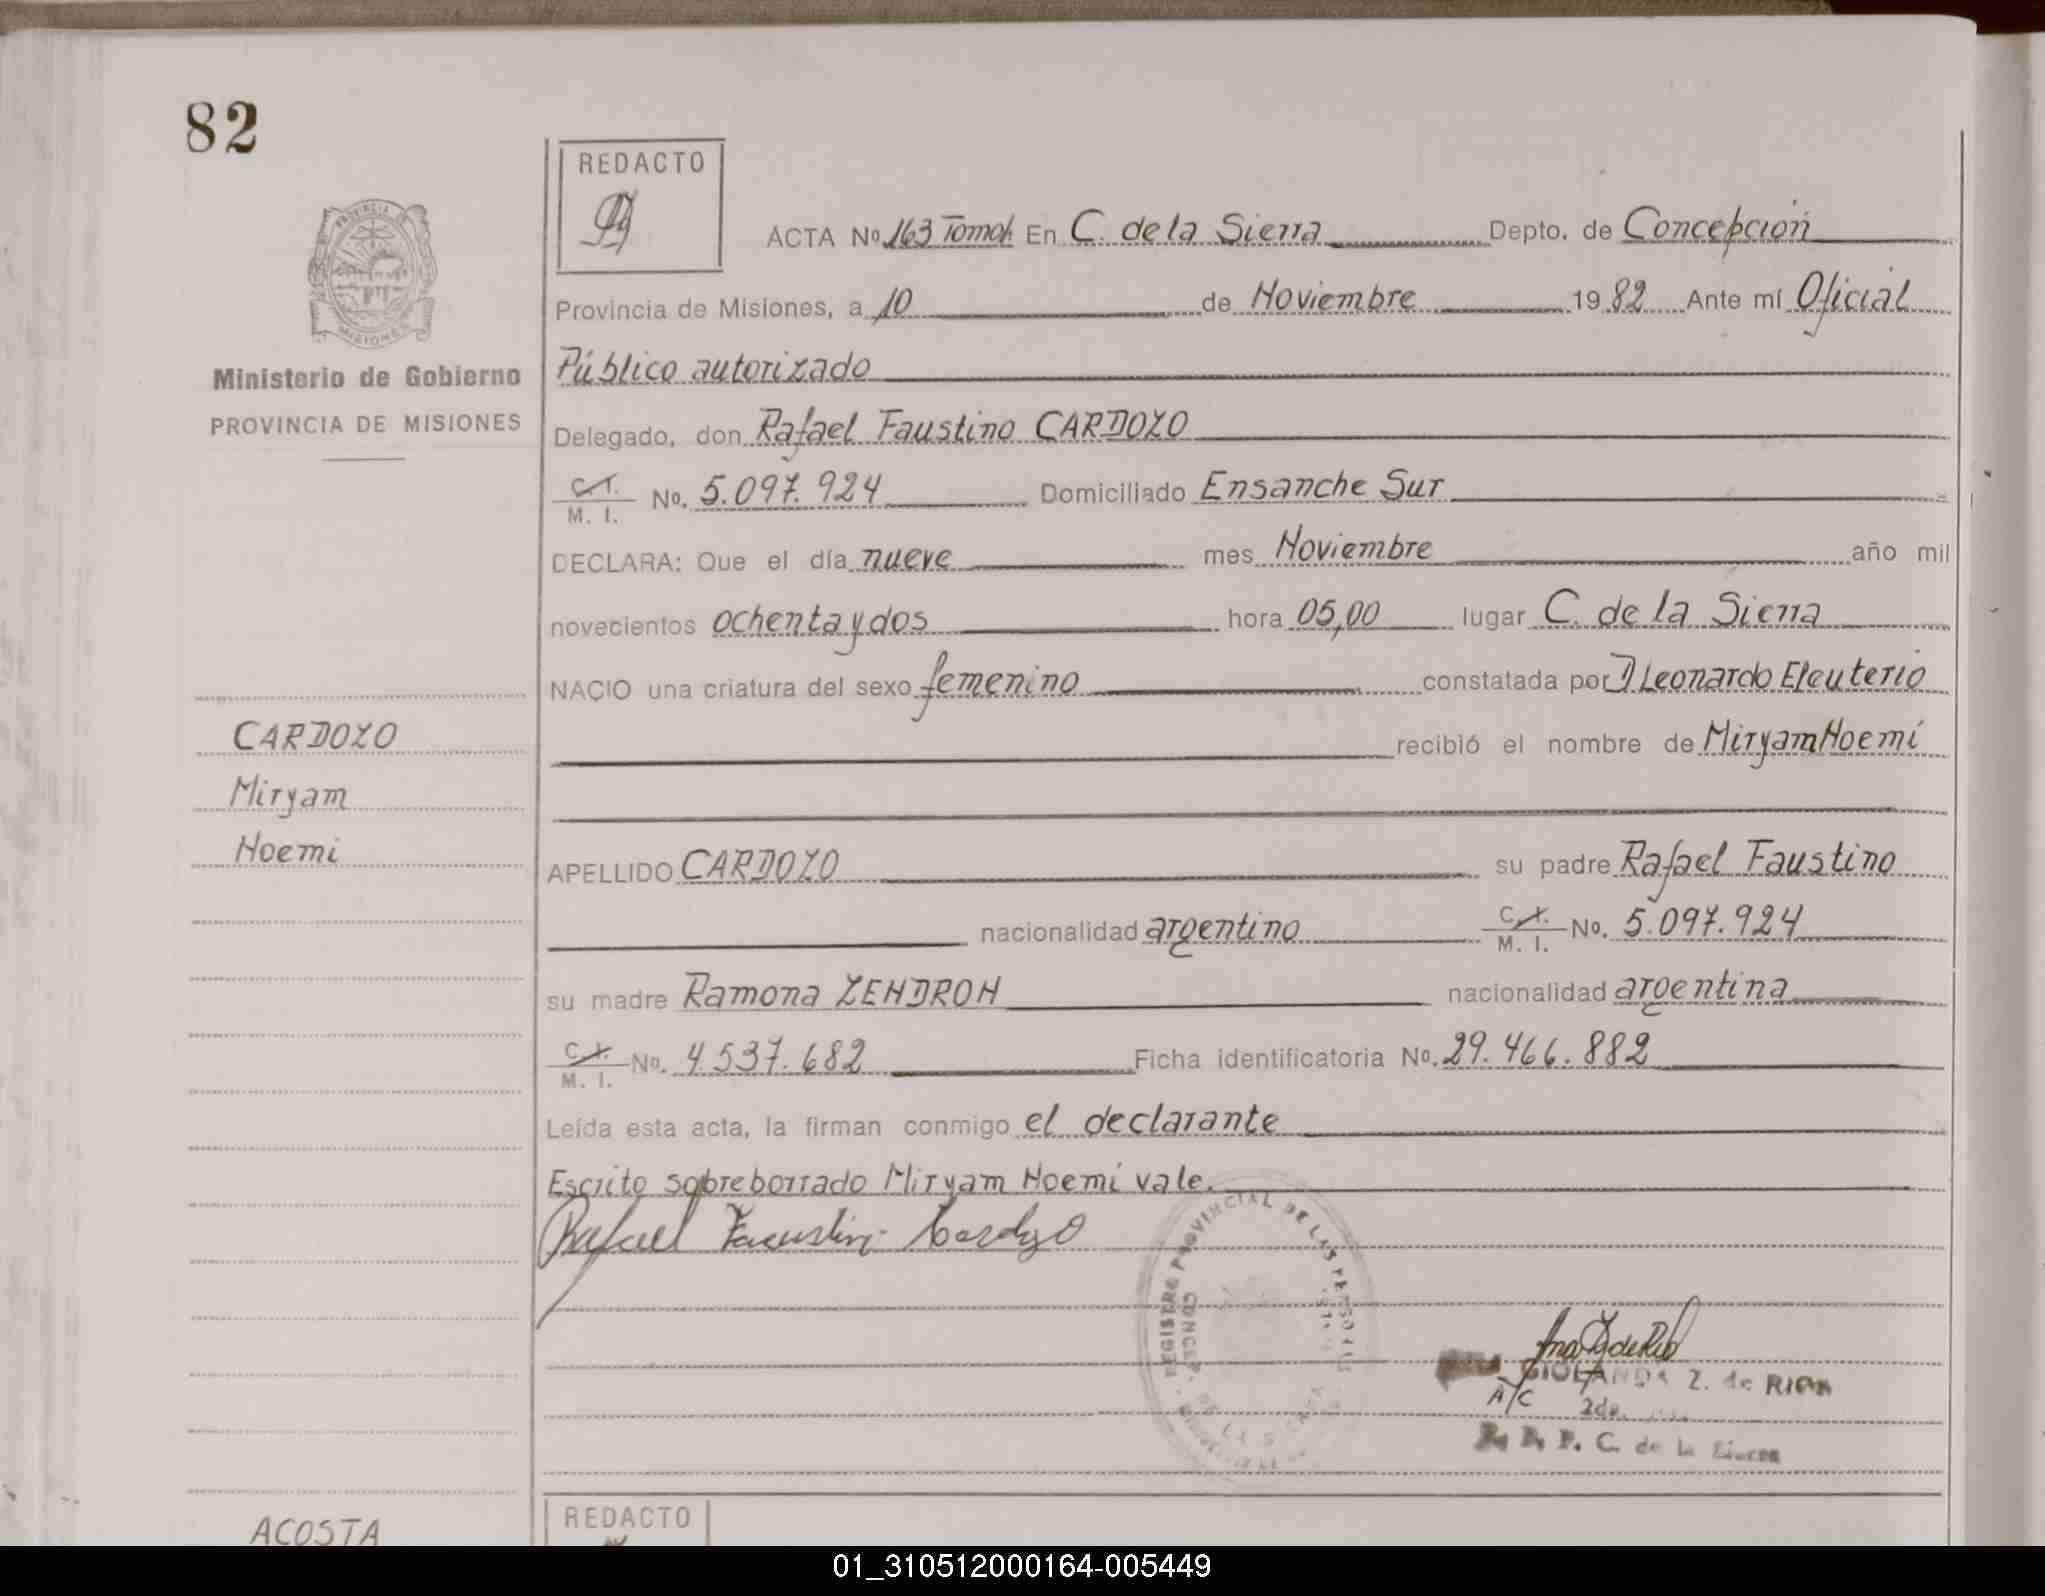 82
REDACTO
PROVINCIA DE
MISIONES
Ministerio de Gobierno
PROVINCIA DE MISIONES
ACTA No. 163 Tomo I. En C. de la Sierra Depto. de Concepción
Provincia de Misiones, a 10 de Noviembre 1982 Ante mí Oficial
Público autorizado
Delegado, don Rafael Faustino CARDOZO
C. I. M. I. No. 5.097.924 Domiciliado Ensanche Sur
DECLARA: Que el día nueve mes Noviembre año mil
novecientos ochenta y dos hora 05,00 lugar C. de la Sierra
NACIO una criatura del sexo femenino constatada por D Leonardo Eleuterio
CARDOZO
recibió el nombre de Miryam Noemí
Miryam
Noemi
APELLIDO CARDOZO su padre Rafael Faustino
nacionalidad argentino C. I. M. I. No. 5.097.924
su madre Ramona ZENDRON nacionalidad argentina
C. I. M. I. No. 4.537.682 Ficha identificatoria No. 29.466.882
Leída esta acta, la firman conmigo el declarante
Escrito sobreborrado Miryam Noemí vale.
Rafael Faustino Cardozo
REGISTRO PROVINCIAL DE LAS PERSONAS
CONCEP.
DE LA SIERRA
Z. de RIOS
A/C 2da.
R. P. P. C. de la Sierra
ACOSTA
REDACTO
01_310512000164-005449